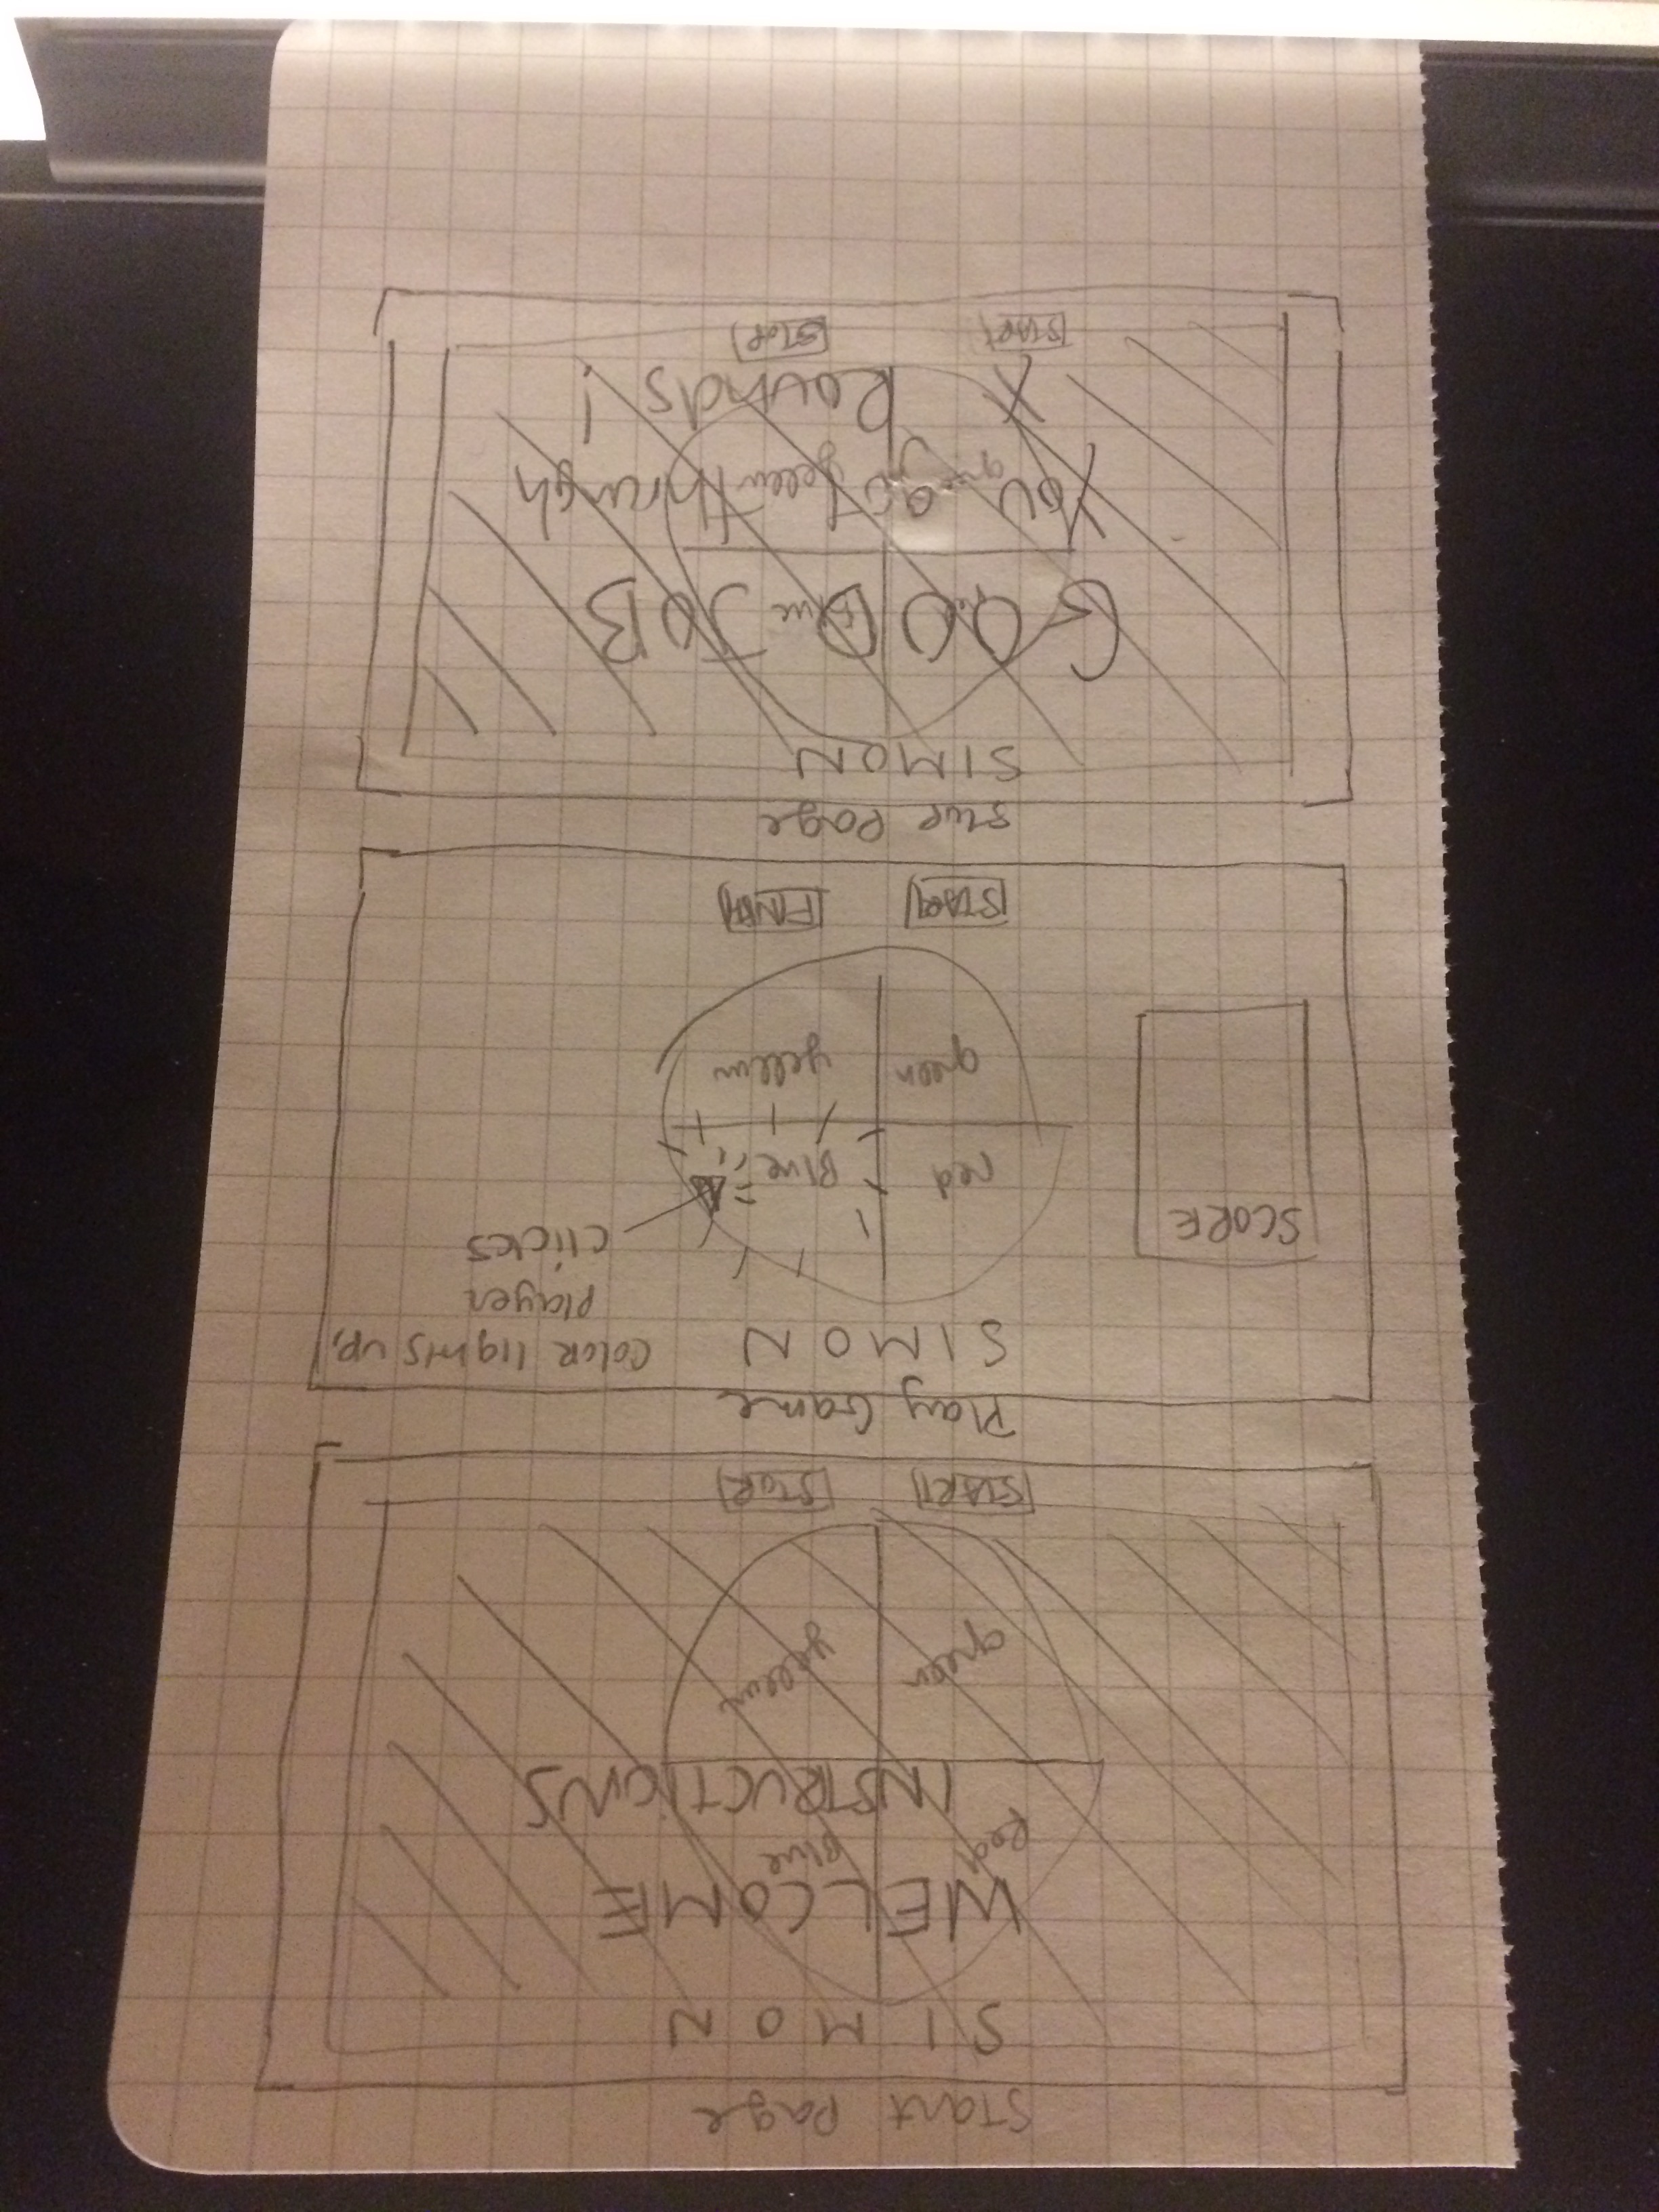 Start Page
SIMON
WELCOME
Red Blue
INSTRUCTIONS
green yellow
START STOP
Play Game
SIMON
COLOR lights up,
player
clicks
SCORE
red Blue
green yellow
START
Page
SIMON
GOOD JOB
Blue
You got through
green yellow
X Rounds!
START STOP